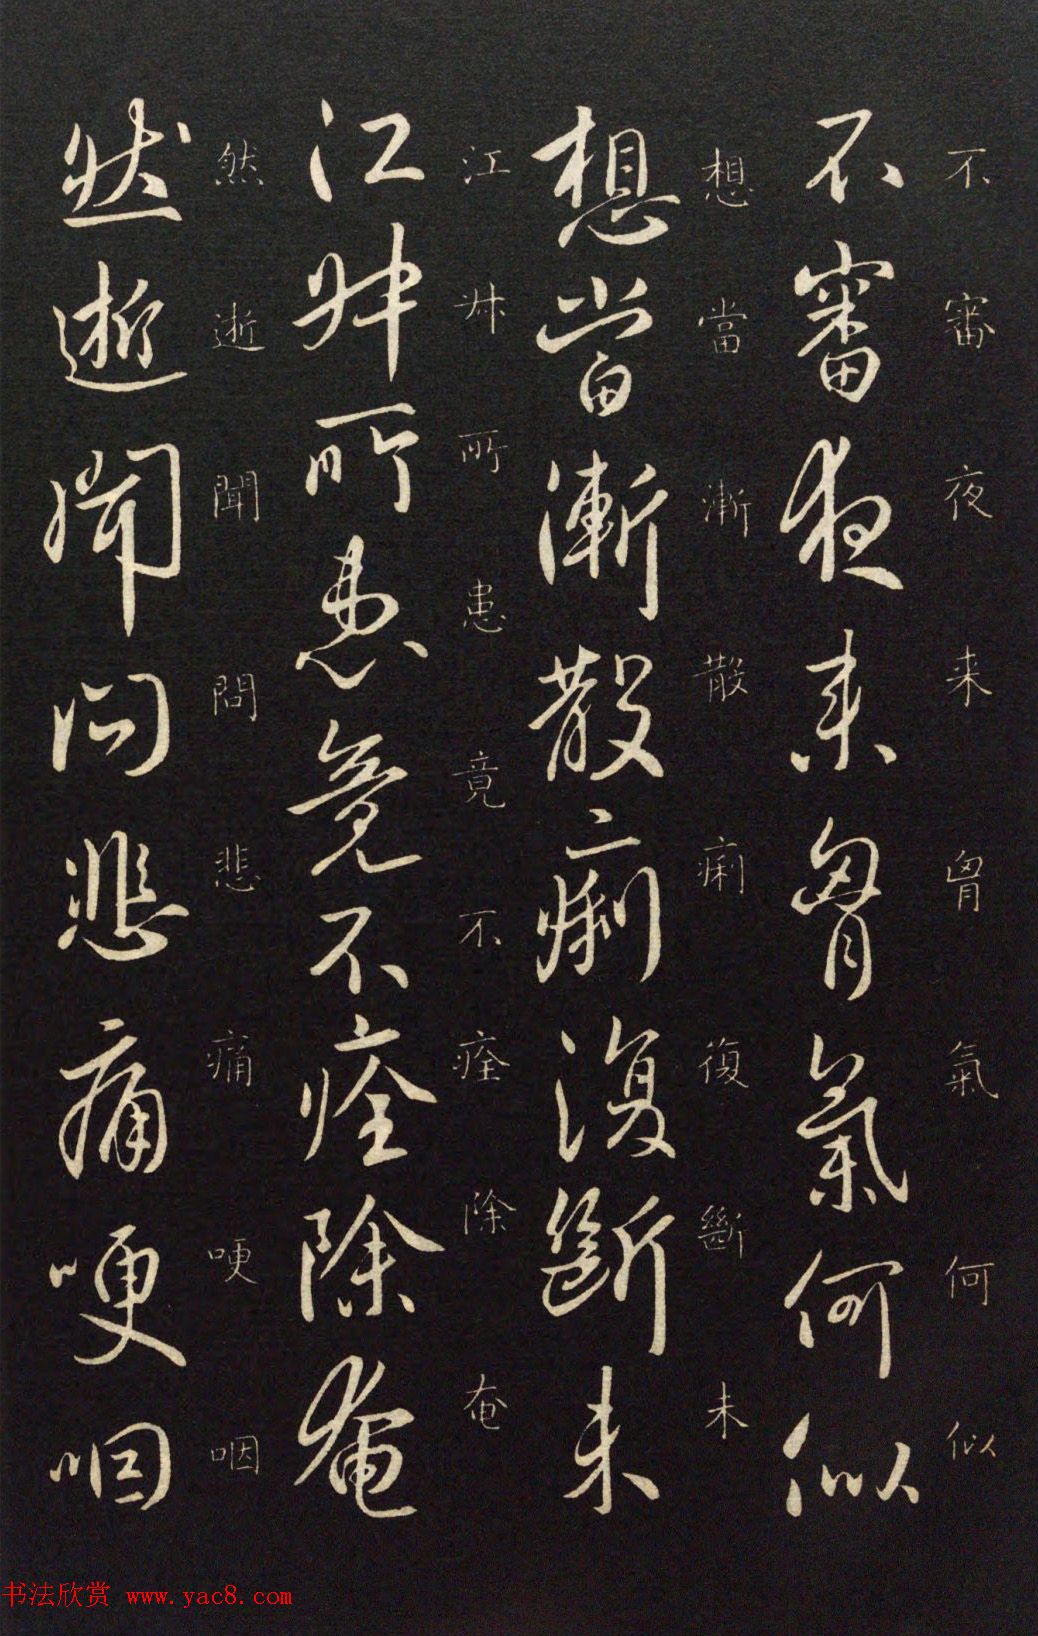 不審夜来胷氣何似
不審夜来胷氣何似
想當漸散痢復斷未
想當漸散痢復斷未
江妹所患竟不痊除奄
江妹所患竟不痊除奄
然逝聞問悲痛哽咽
然逝聞問悲痛哽咽
书法欣赏 www.yac8.com